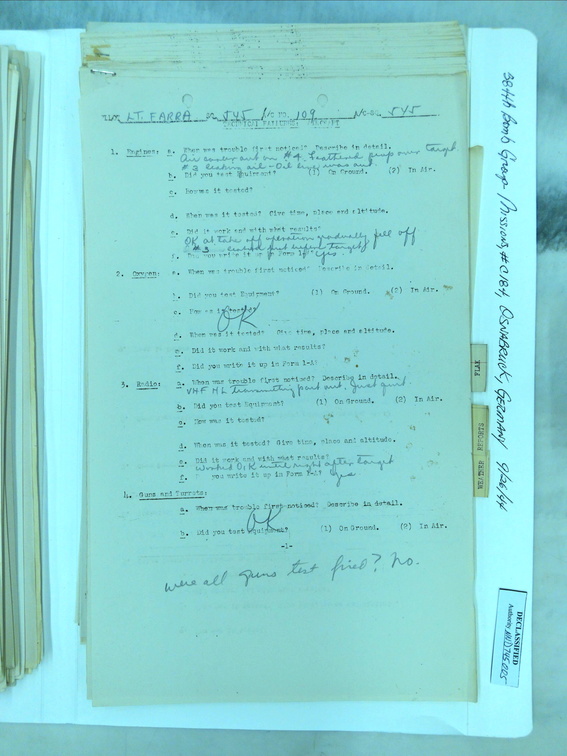 LT. FARRA 545 A/C NO. 109 545
TECHNICAL FAILURES REPORT
1. Engines: a. When was trouble first noticed? Describe in detail.
Air on #4. feathered over target
#3 leaking oil - Oil
b. Did you test Equipment? (1) On Ground. (2) In Air.
c. How was it tested?
d. When was it tested? Give time, place and altitude.
e. Did it work and with what results?
OK at take off operation gradually fell off
#3 before target
f. Did you write it up in Form 1-A? Yes.
2. Oxygen: a. When was trouble first noticed? Describe in detail.
b. Did you test Equipment? (1) On Ground. (2) In Air.
c. How was it tested?
OK
d. When was it tested? Give time, place and altitude.
e. Did it work and with what results?
f. Did you write it up in Form 1-A?
3. Radio: a. When was trouble first noticed? Describe in detail.
VHF transmitting part out. Just quit.
b. Did you test Equipment? (1) On Ground. (2) In Air.
c. How was it tested?
d. When was it tested? Give time, place and altitude.
e. Did it work and with what results?
Worked O.K. until right after target
f. you write it up in Form 1-A? Yes
4. Guns and Turrets:
a. When was trouble first noticed? Describe in detail.
OK
b. Did you test Equipment? (1) On Ground. (2) In Air.
-1-
were all guns test fired? No.
384th Bomb Group Missions #C184, OSNABRUCK, GERMANY 9/26/44
FLAK
DECLASSIFIED
Authority NND 745005